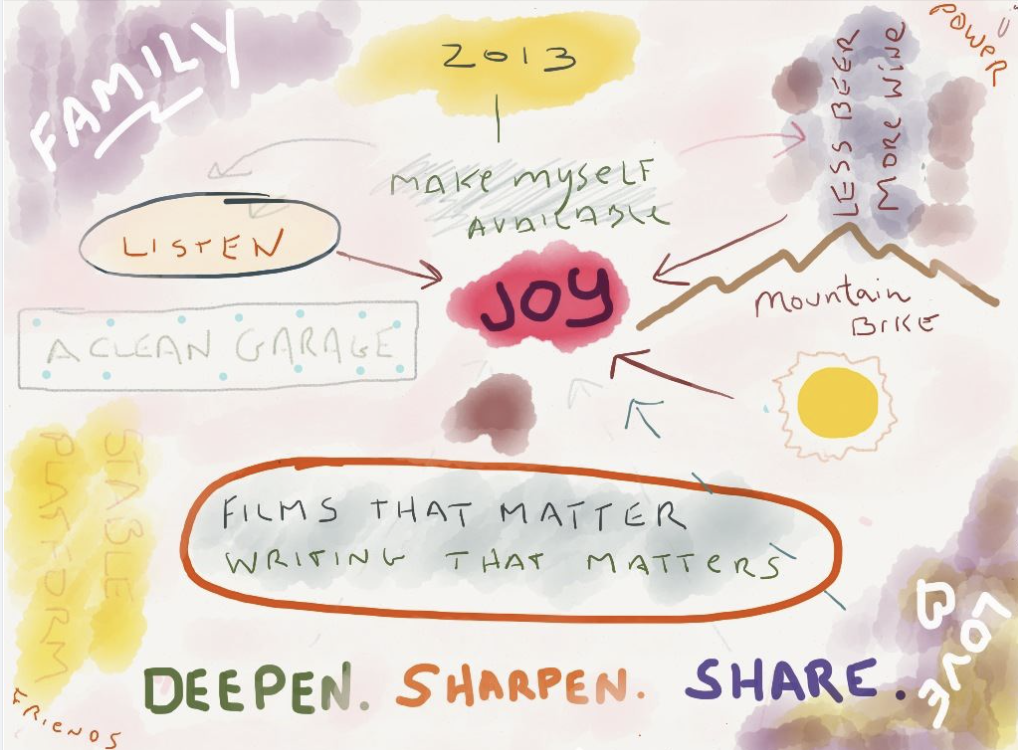 FAMILY
2013
LESS BEER
MORE WINE
POWER
MAKE MYSELF
AVAILABLE
LISTEN
JOY
MOUNTAIN
BIKE
A CLEAN GARAGE
STABLE
PLATFORM
FILMS THAT MATTER
WRITING THAT MATTERS
LOVE
DEEPEN. SHARPEN. SHARE.
FRIENDS